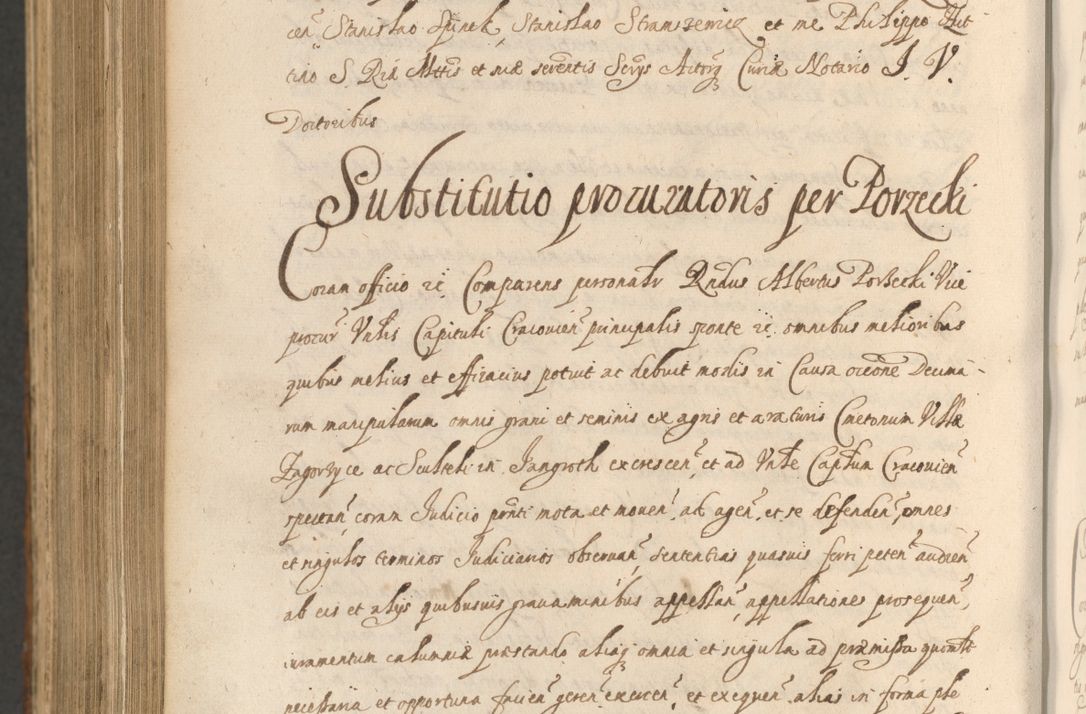 cen Stanislao Spinek, Stanislao Stramszewicz et me Philippo
S. Rae Mttis et suae serentis Actorq Curiae Notario J. V.
Doctoribus
Substitutio procuratoris per Porzecki
Coram officio etc Comparens personalr Rndus Albertus Porzecki Vice
procur Vnlis Capituli Cracovien principalis sponte etc. omnibus melioribus
quibus melius et efficacius potuit ac debuit modis in Causa oceone Decima-
rum manipularum omnis grani et seminis ex agris et araturis Cmetonum Villae
Zagorzyce ac Sculteti in Jangroth excrescen, et ad Vnle Captum Cracovien
spectan, coram Judicio pnti mota et moven, ab agen, et se defenden, omnes
et singulos terminos Judiciarios observan, sententias quasvis ferri peten, audien
ab eis et alijs quibusvis gravaminibus appellan, appellationes prosequen,
iuramentum calumniae praestando aliaq omnia et singula ad praemissa quomlt
necessaria et opportuna facien, geren, exercen, et exequen, alias in forma ple